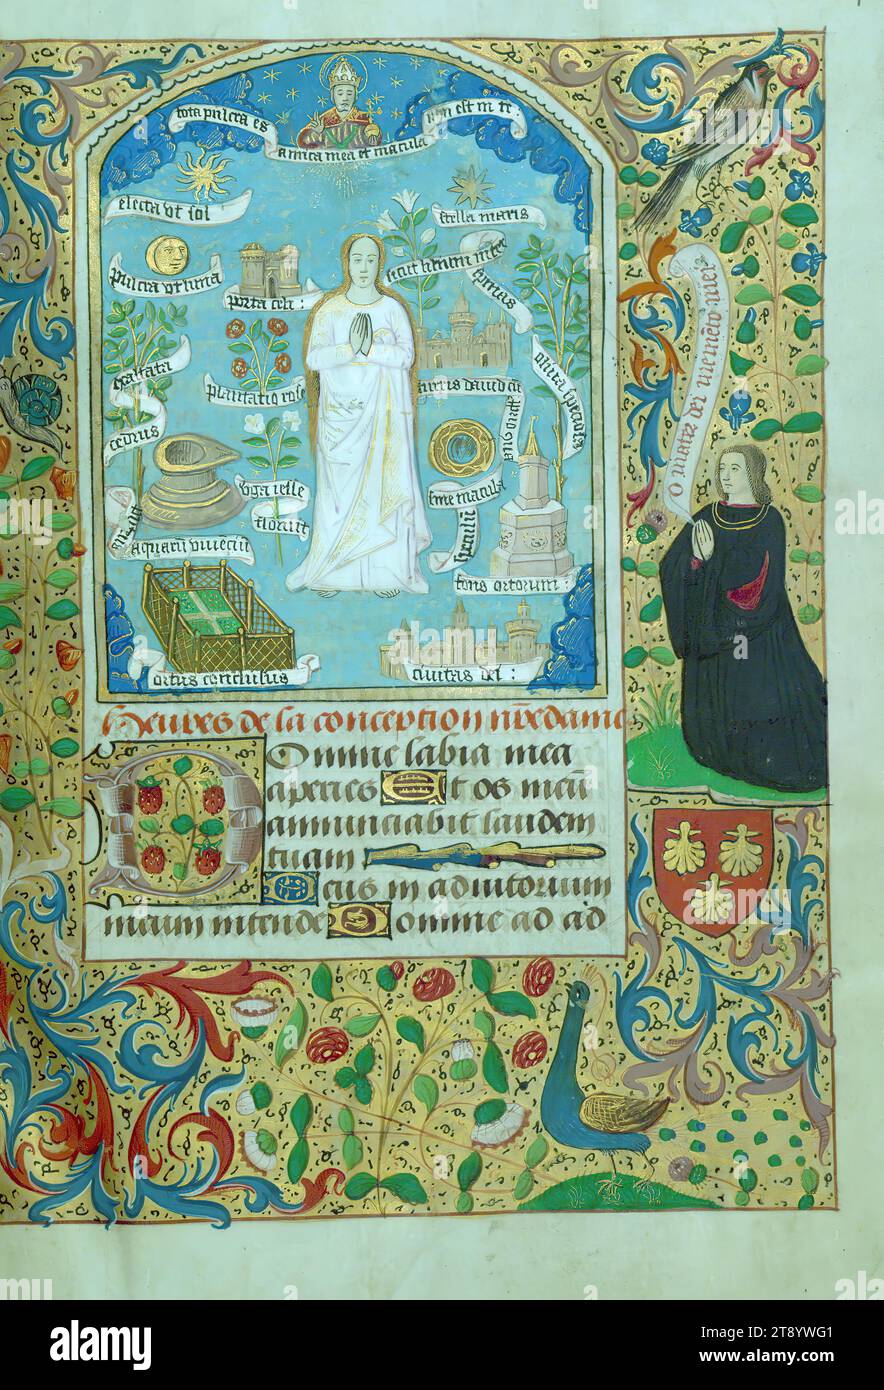 tota pulcra es
amica mea et macula
non est in te
electa ut sol
stella maris
pulcra ut luna
porta celi :
sicut lilium inter
spinas
exaltata
cedrus
plantatio rose
turris david cū
oliva speciosa
virga iesse
floruit
aquarū viventiū
sine macula
fons ortorum :
ortus conclusus
civitas dei :
o mater dei memento mei
Heures de la conception nr̄edame
Domine labia mea
aperies Et os meū
annunciabit laudem
tuam
Deus in adiutorium
meum intende Domine ad ad
alamy
Image ID: 2T8YWG1
www.alamy.com